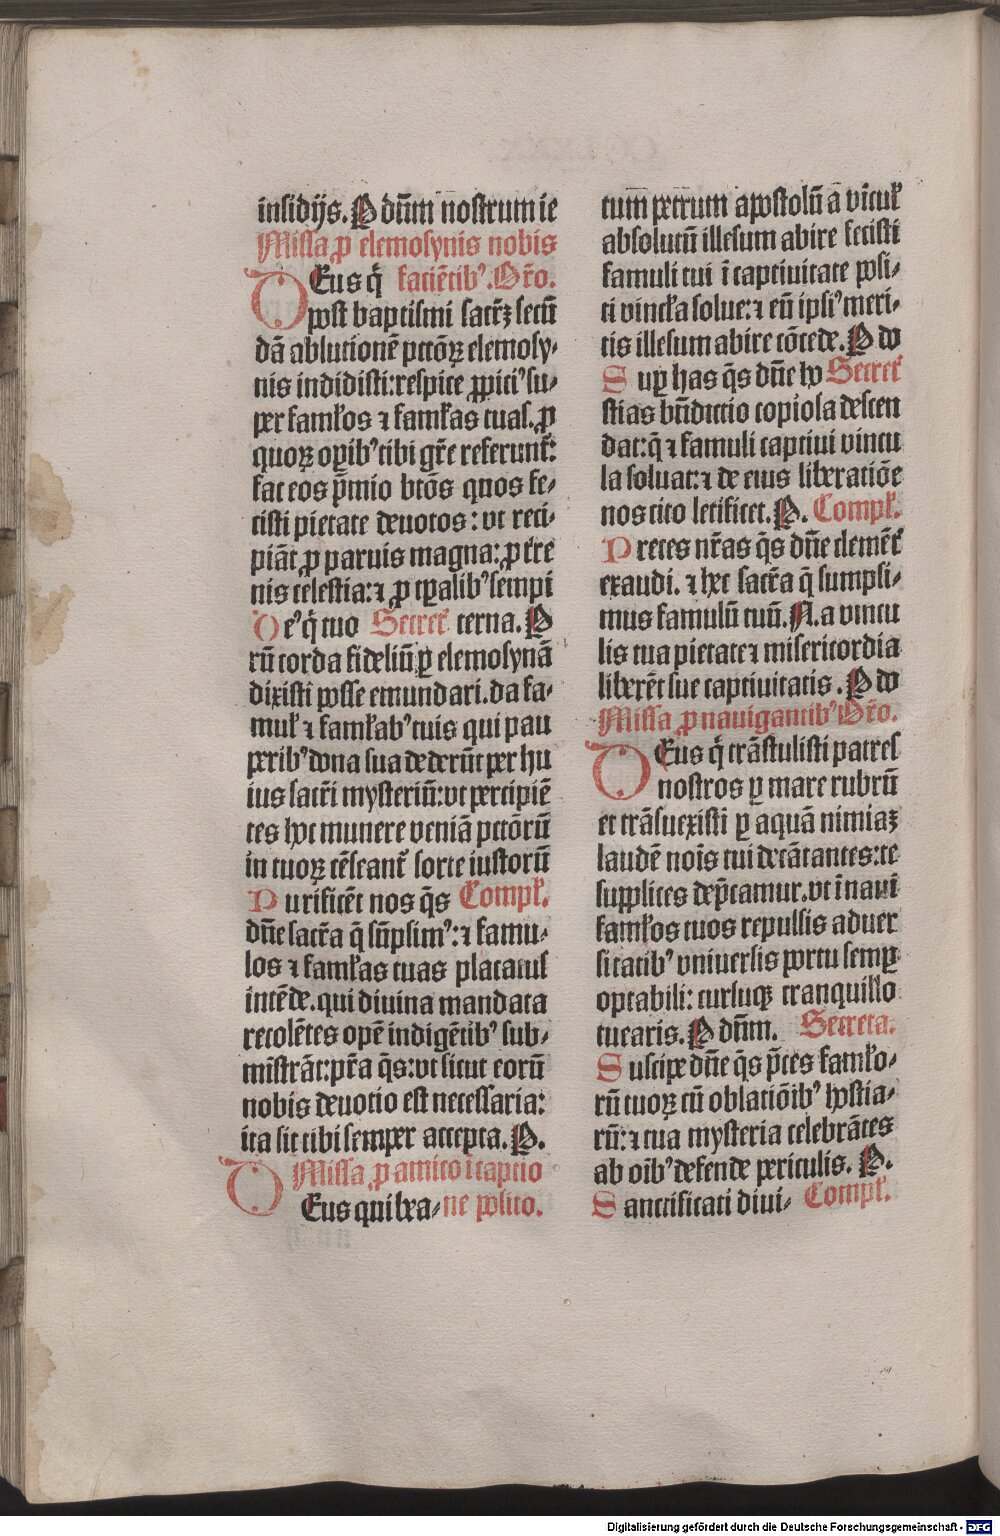 insidijs. P dn̄m nostrum ie
Missa ꝓ elemosynis nobis
DEus q̄ faciētibꝰ. Or̄o.
post baptismi sacr̄ꝫ secū
dā ablutionē pctōꝝ elemosy⸗
nis indidisti: respice ꝓpiciꝰ su⸗
per famƚos ⁊ famƚas tuas. ꝓ
quoꝝ oꝑibꝰ tibi gr̄e referunt᷑:
fac eos p̄mio btōs quos fe⸗
cisti pietate deuotos: vt reci⸗
piāt ꝓ paruis magna: ꝓ tr̄e
nis celestia: ⁊ ꝓ tꝑalibꝰ sempi
Deꝰ q̄ tuo Secret᷑ terna. P
rū corda fideliū ꝑ elemosynā
dixisti posse emundari. da fa⸗
muƚ ⁊ famƚabꝰ tuis qui pau
peribꝰ dona sua dederūt per hu
ius sacr̄i mysteriū: vt percipiē
tes hoc munere veniā pctōrū
in tuoꝝ cēseant᷑ sorte iustorū
Purificēt nos q̄s Compƚ.
dn̄e sacr̄a q̄ sūpsimꝰ: ⁊ famu⸗
los ⁊ famƚas tuas placatus
intēde. qui diuina mandata
recolētes opē indigētibꝰ sub⸗
mīstrāt: pr̄a q̄s: vt sicut eorū
nobis deuotio est necessaria:
ita sit tibi semper accepta. P.
Missa ꝓ amico ī captio
DEus qui bea⸗ ne posito.
tum petrum apostolū a vīcuƚ
absolutū illesum abire fecisti
famuli tui ī captiuitate posi⸗
ti vincƚa solue: ⁊ eū ipsiꝰ meri⸗
tis illesum abire cōcede. P do
Suꝑ has q̄s dn̄e ho Secret᷑
stias bn̄dictio copiosa descen
dat: q̄ ⁊ famuli captiui vincu
la soluat: ⁊ de eius liberatiōe
nos cito letificet. P. Compƚ.
Preces nr̄as q̄s dn̄e clemēt᷑
exaudi. ⁊ hec sacr̄a q̄ sumpsi⸗
mus famulū tuū. N. a vincu
lis tua pietate ⁊ misericordia
liberēt sue captiuitatis. P do
Missa ꝓ nauigantibꝰ Or̄o.
DEus q̄ trāstulisti patres
nostros ꝑ mare rubrū
et trāsuexisti ꝑ aquā nimiaꝫ
laudē nois̄ tui decātantes: te
supplices dep̄camur. vt ī naui
famƚos tuos repulsis aduer
sitatibꝰ vniuersis portu semꝑ
optabili: cursuqꝫ tranquillo
tuearis. P dn̄m. Secreta.
Suscipe dn̄e q̄s p̄ces famƚo⸗
rū tuoꝝ cū oblatiōibꝰ hostia⸗
rū: ⁊ tua mysteria celebrātes
ab oībꝰ defende periculis. P.
Sanctificati diui⸗ Compƚ.
Digitalisierung gefördert durch die Deutsche Forschungsgemeinschaft - DFG